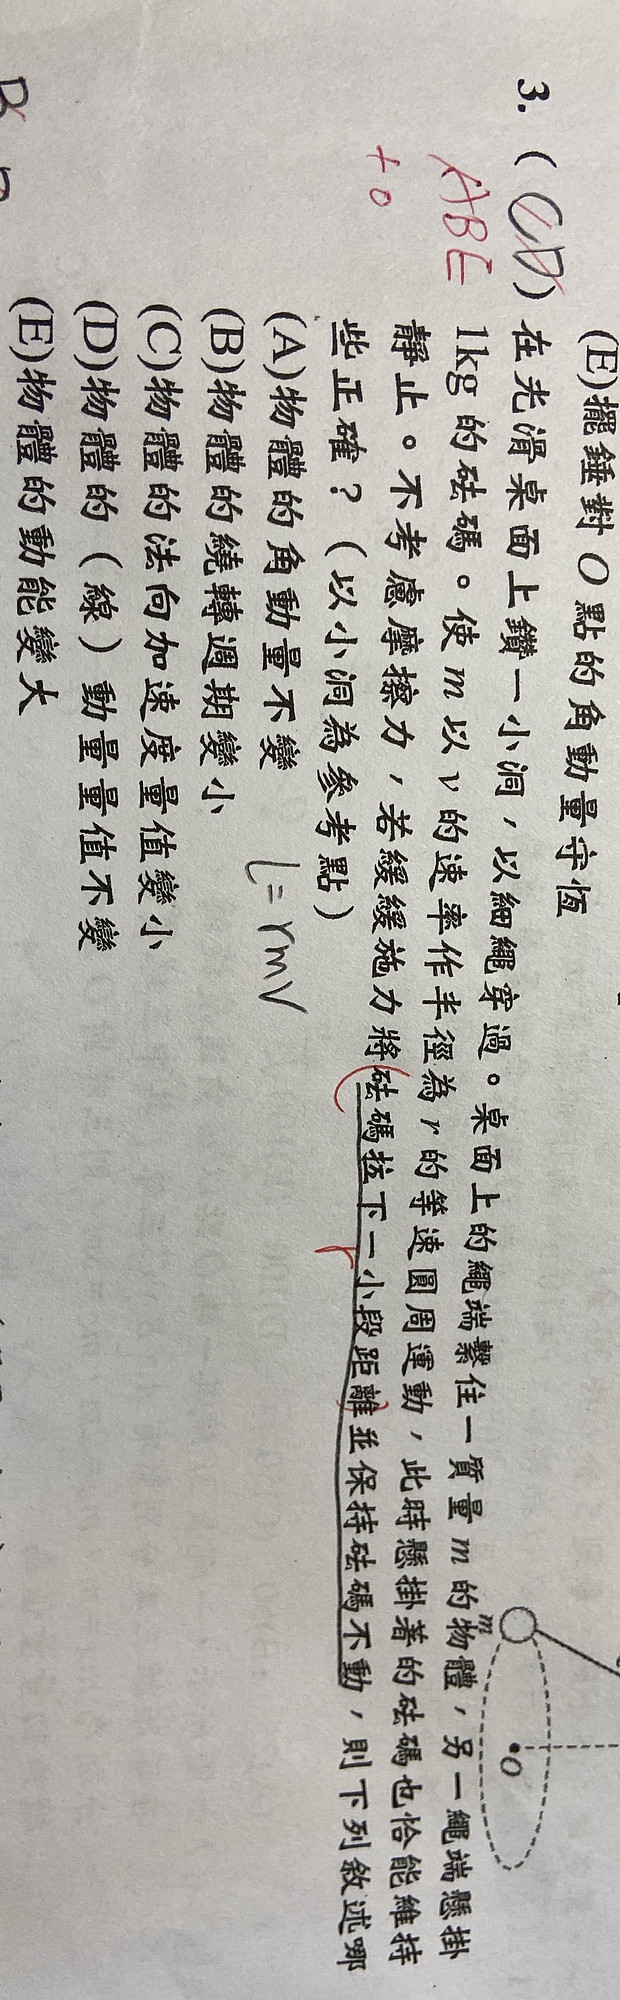 (E)擺錘對O點的角動量守恆
3. (CD)在光滑桌面上鑽一小洞,以細繩穿過。桌面上的繩端繫住一質量m的物體,另一繩端懸掛
ABE 1kg的砝碼。使m以v的速率作半徑為r的等速圓周運動,此時懸掛著的砝碼也恰能維持
+0 靜止。不考慮摩擦力,若緩緩施力將砝碼拉下一小段距離並保持砝碼不動,則下列敘述哪
r
些正確?(以小洞為參考點)
(A)物體的角動量不變 L=rmv
(B)物體的繞轉週期變小
(C)物體的法向加速度量值變小
(D)物體的(線)動量量值不變
(E)物體的動能變大
m
O
B